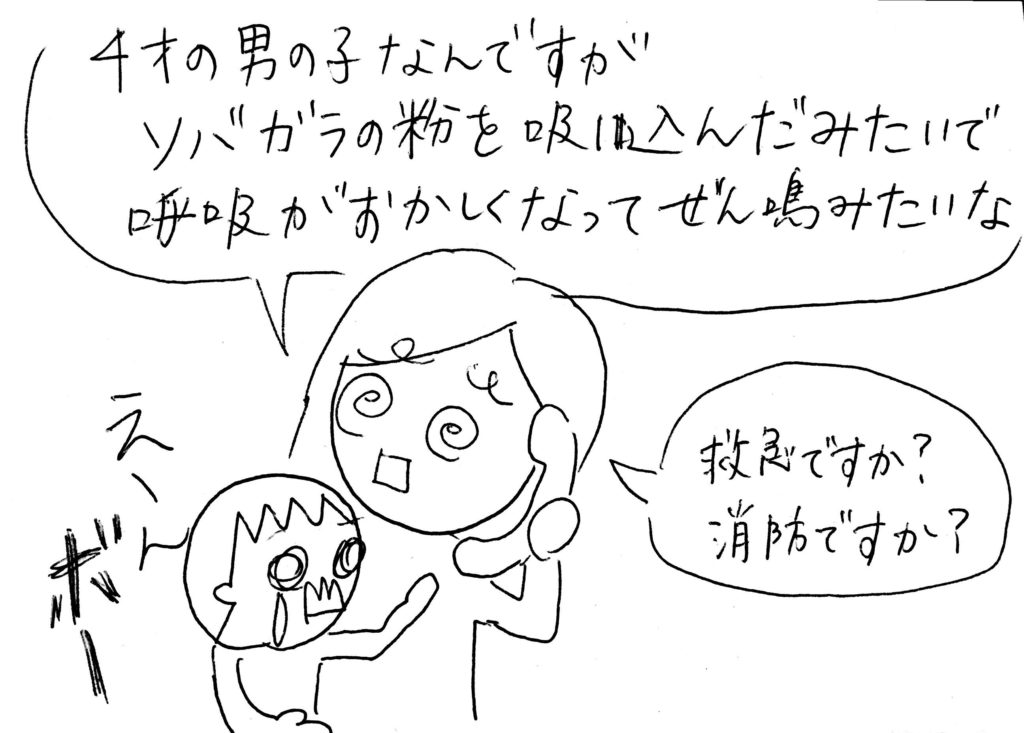 4才の男の子なんですが
ソバガラの粉を吸い込んだみたいで
呼吸がおかしくなってぜん鳴みたいな
救急ですか?
消防ですか?
えーん
ギー